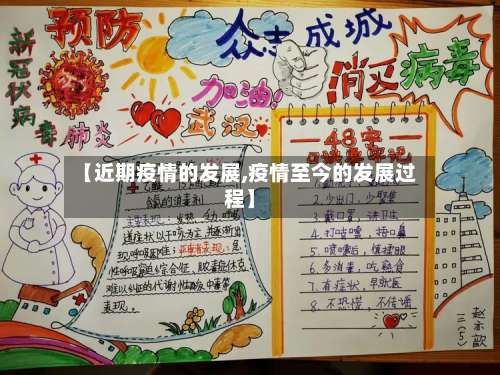 预防
新冠状病毒肺炎
众志成城
消灭病毒
加油!
武汉
【近期疫情的发展,疫情至今的发展过程】
48字
2.少出门,少聚集
3.戴口罩,讲卫生
4.打喷嚏,捂口鼻
5.喷嚏后,慎揉眼
6.多消毒,吃熟食
7.有症状,早就医
8.不恐慌,不传谣
含氯的消毒剂
主要表现:发热、乏力、呼吸
道症状以干咳为主,并逐渐出
现呼吸困难;严重者表现:急
性呼吸窘迫综合征、脓毒症休克、
难以纠正的代谢性酸中毒等
表现。
三(5)